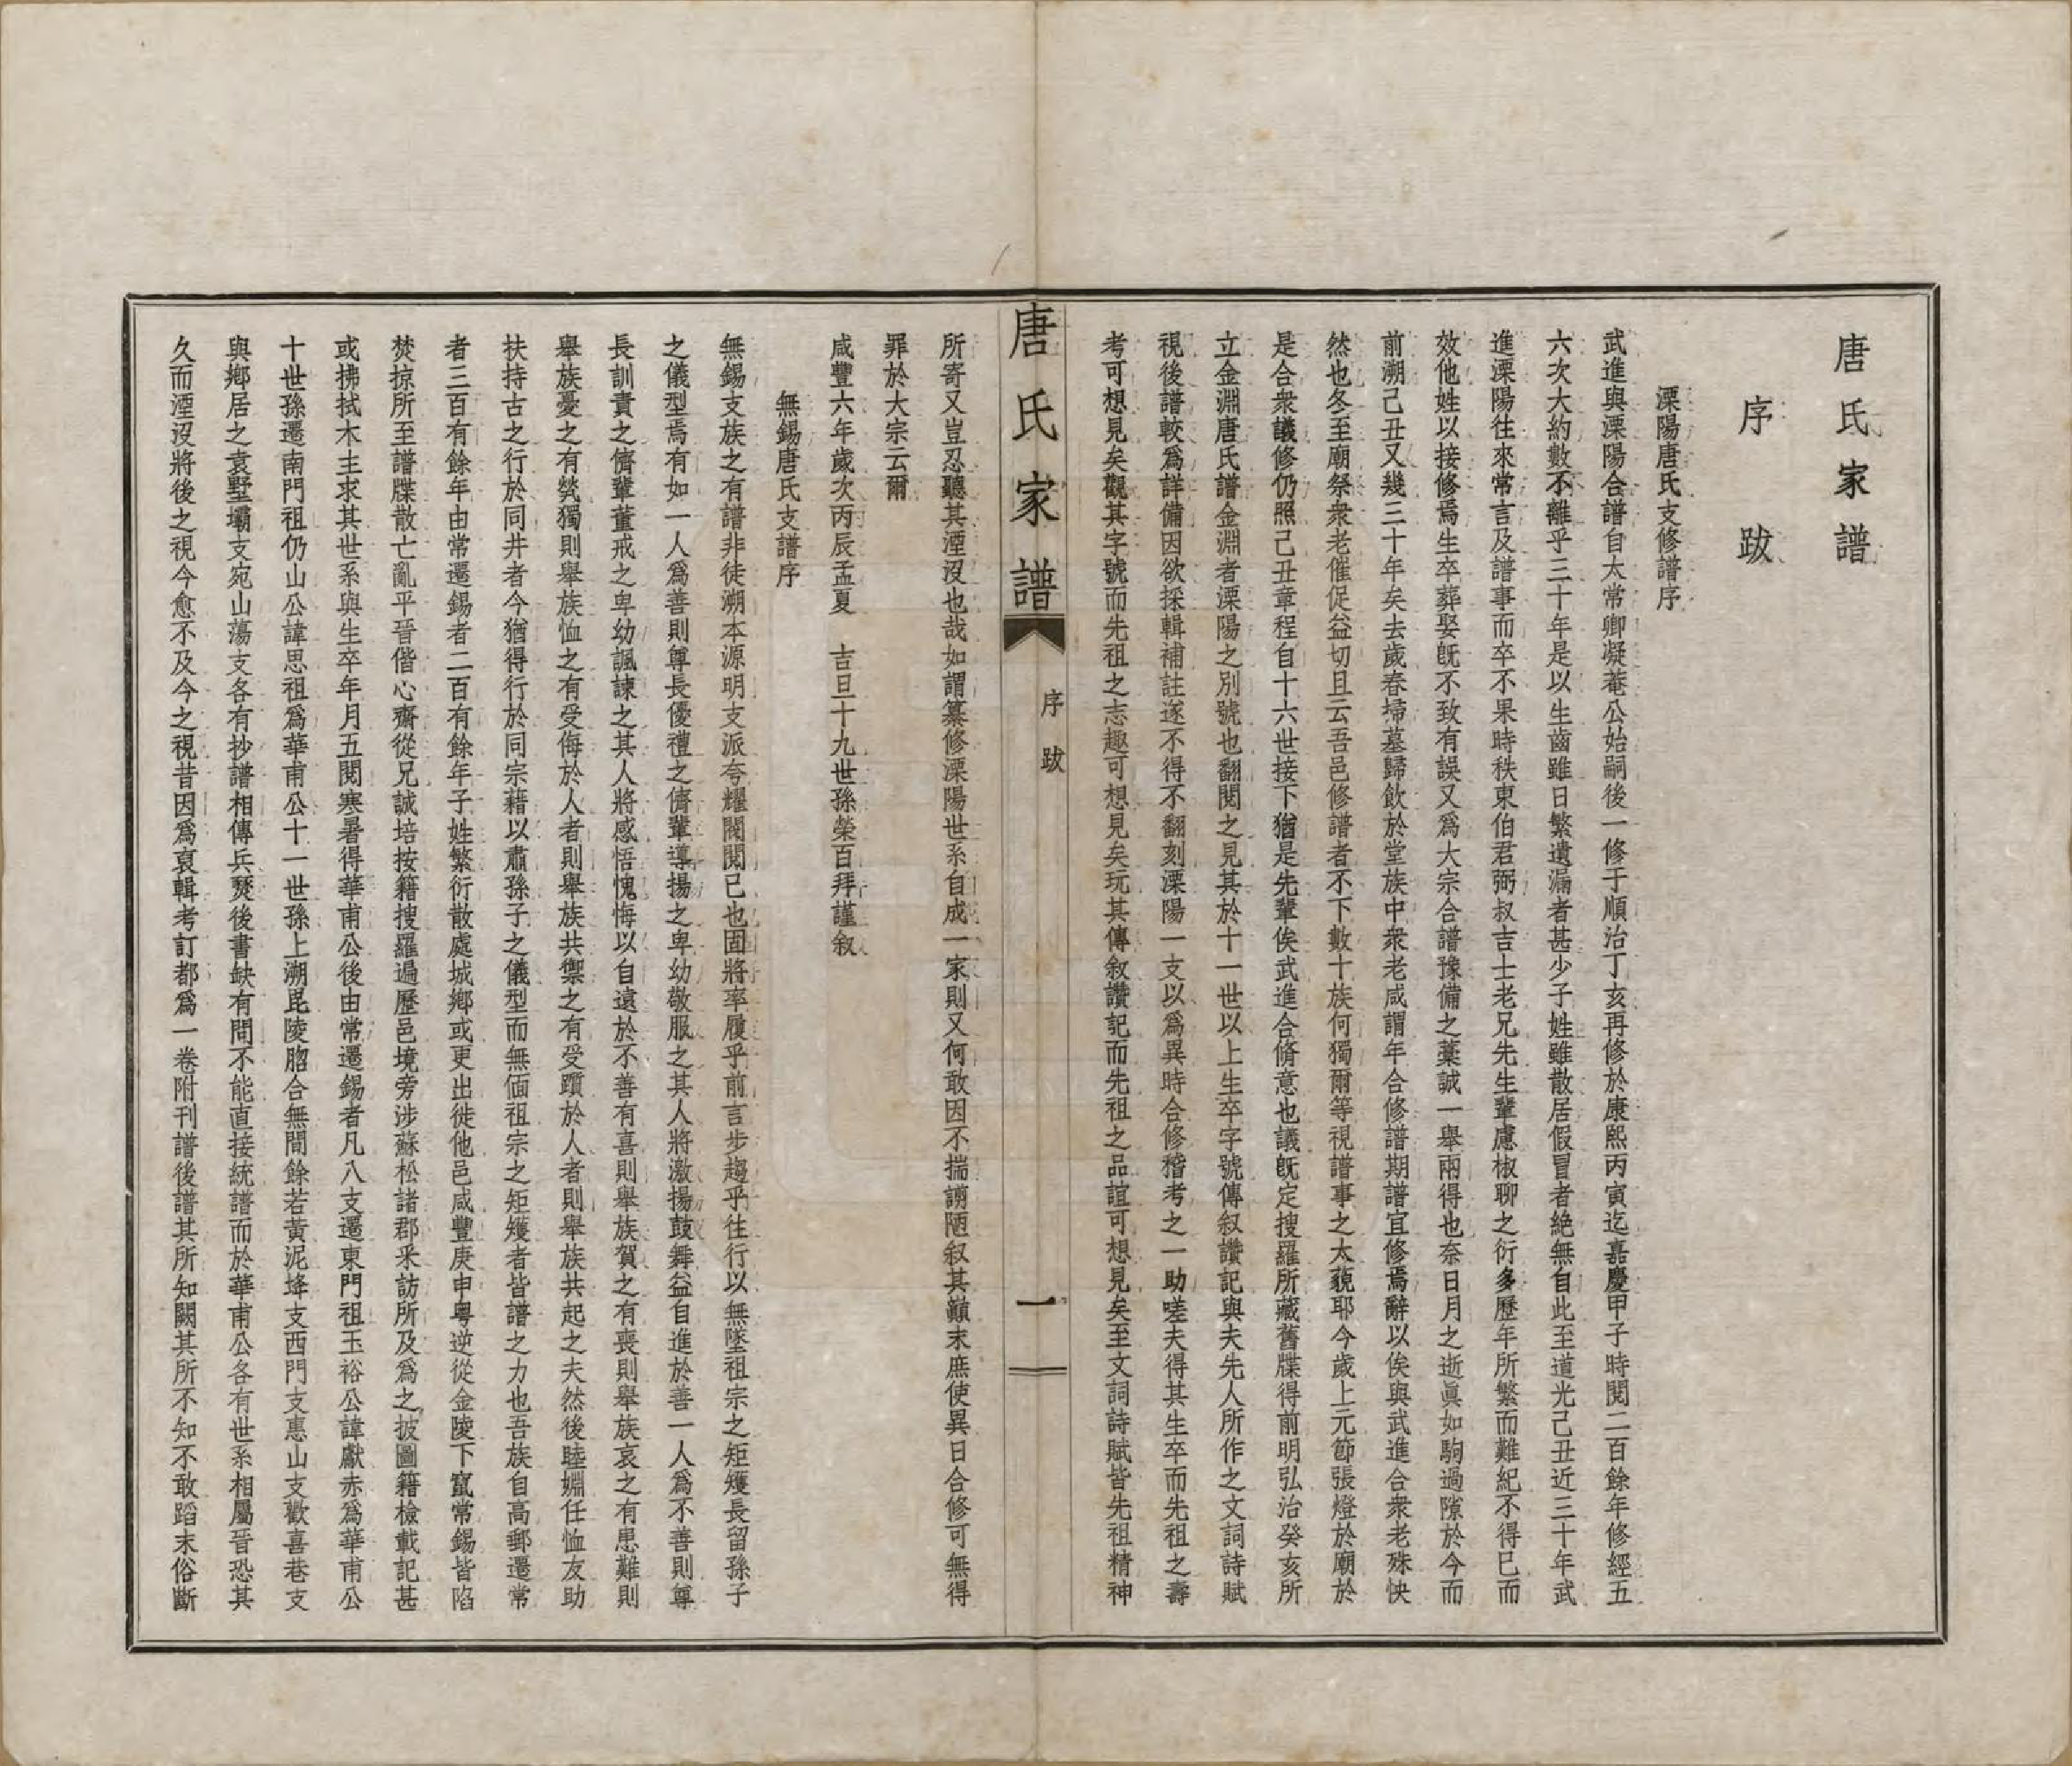 唐氏家譜
序跋
溧陽唐氏支修譜序
武進與溧陽合譜自太常卿凝菴公始嗣後一修于順治丁亥再修於康熙丙寅迄嘉慶甲子時閱二百餘年修經五
六次大約數不離乎三十年是以生齒雖日繁遺漏者甚少子姓雖散居假冒者絶無自此至道光己丑近三十年武
進溧陽往來常言及譜事而卒不果時秩東伯君弼叔吉士老兄先生輩慮椒聊之衍多歷年所繁而難紀不得已而
效他姓以接修焉生卒葬娶旣不致有誤又爲大宗合譜豫備之藁誠一舉兩得也奈日月之逝眞如駒過隙於今而
前溯己丑又幾三十年矣去歲春埽墓歸飲於堂族中衆老咸謂年合修譜期譜宜修焉辭以俟與武進合衆老殊怏
然也冬至廟祭衆老催促益切且云吾邑修譜者不下數十族何獨爾等視譜事之太藐耶今歲上元節張燈於廟於
是合衆議修仍照己丑章程自十六世接下猶是先輩俟武進合脩意也議旣定搜羅所藏舊牒得前明弘治癸亥所
立金淵唐氏譜金淵者溧陽之別號也翻閱之見其於十一世以上生卒字號傳叙讚記與夫先人所作之文詞詩賦
視後譜較爲詳備因欲採輯補註遂不得不翻刻溧陽一支以爲異時合修稽考之一助嗟夫得其生卒而先祖之壽
考可想見矣觀其字號而先祖之志趣可想見矣玩其傳叙讚記而先祖之品誼可想見矣至文詞詩賦皆先祖精神
唐氏家譜
序跋
一
所寄又豈忍聽其湮沒也哉如謂纂修溧陽世系自成一家則又何敢因不揣謭陋叙其巔末庶使異日合修可無得
罪於大宗云爾
咸豐六年歲次丙辰孟夏　吉旦十九世孫榮百拜謹叙
無錫唐氏支譜序
無錫支族之有譜非徒溯本源明支派夸耀閥閱已也固將率履乎前言步趨乎往行以無墜祖宗之矩矱長留孫子
之儀型焉有如一人爲善則尊長優禮之儕輩導揚之卑幼敬服之其人將激揚鼓舞益自進於善一人爲不善則尊
長訓責之儕輩董戒之卑幼諷諫之其人將感悟愧悔以自遠於不善有喜則舉族賀之有喪則舉族哀之有患難則
舉族憂之有煢獨則舉族恤之有受侮於人者則舉族共禦之有受躓於人者則舉族共起之夫然後睦婣任恤友助
扶持古之行於同井者今猶得行於同宗藉以肅孫子之儀型而無偭祖宗之矩矱者皆譜之力也吾族自高郵遷常
者三百有餘年由常遷錫者二百有餘年子姓繁衍散處城鄕或更出徙他邑咸豐庚申粤逆從金陵下竄常錫皆陷
焚掠所至譜牒散亡亂平晉偕心齋從兄誠培按籍搜羅遍歷邑境旁涉蘇松諸郡釆訪所及爲之披圖籍檢載記甚
或拂拭木主求其世系與生卒年月五閱寒暑得華甫公後由常遷錫者凡八支遷東門祖玉裕公諱獻赤爲華甫公
十世孫遷南門祖仍山公諱思祖爲華甫公十一世孫上溯毘陵脗合無間餘若黃泥埄支西門支惠山支歡喜巷支
與鄕居之袁墅壩支宛山蕩支各有抄譜相傳兵燹後書缺有間不能直接統譜而於華甫公各有世系相屬晉恐其
久而湮沒將後之視今愈不及今之視昔因爲裒輯考訂都爲一卷附刊譜後譜其所知闕其所不知不敢蹈末俗斷